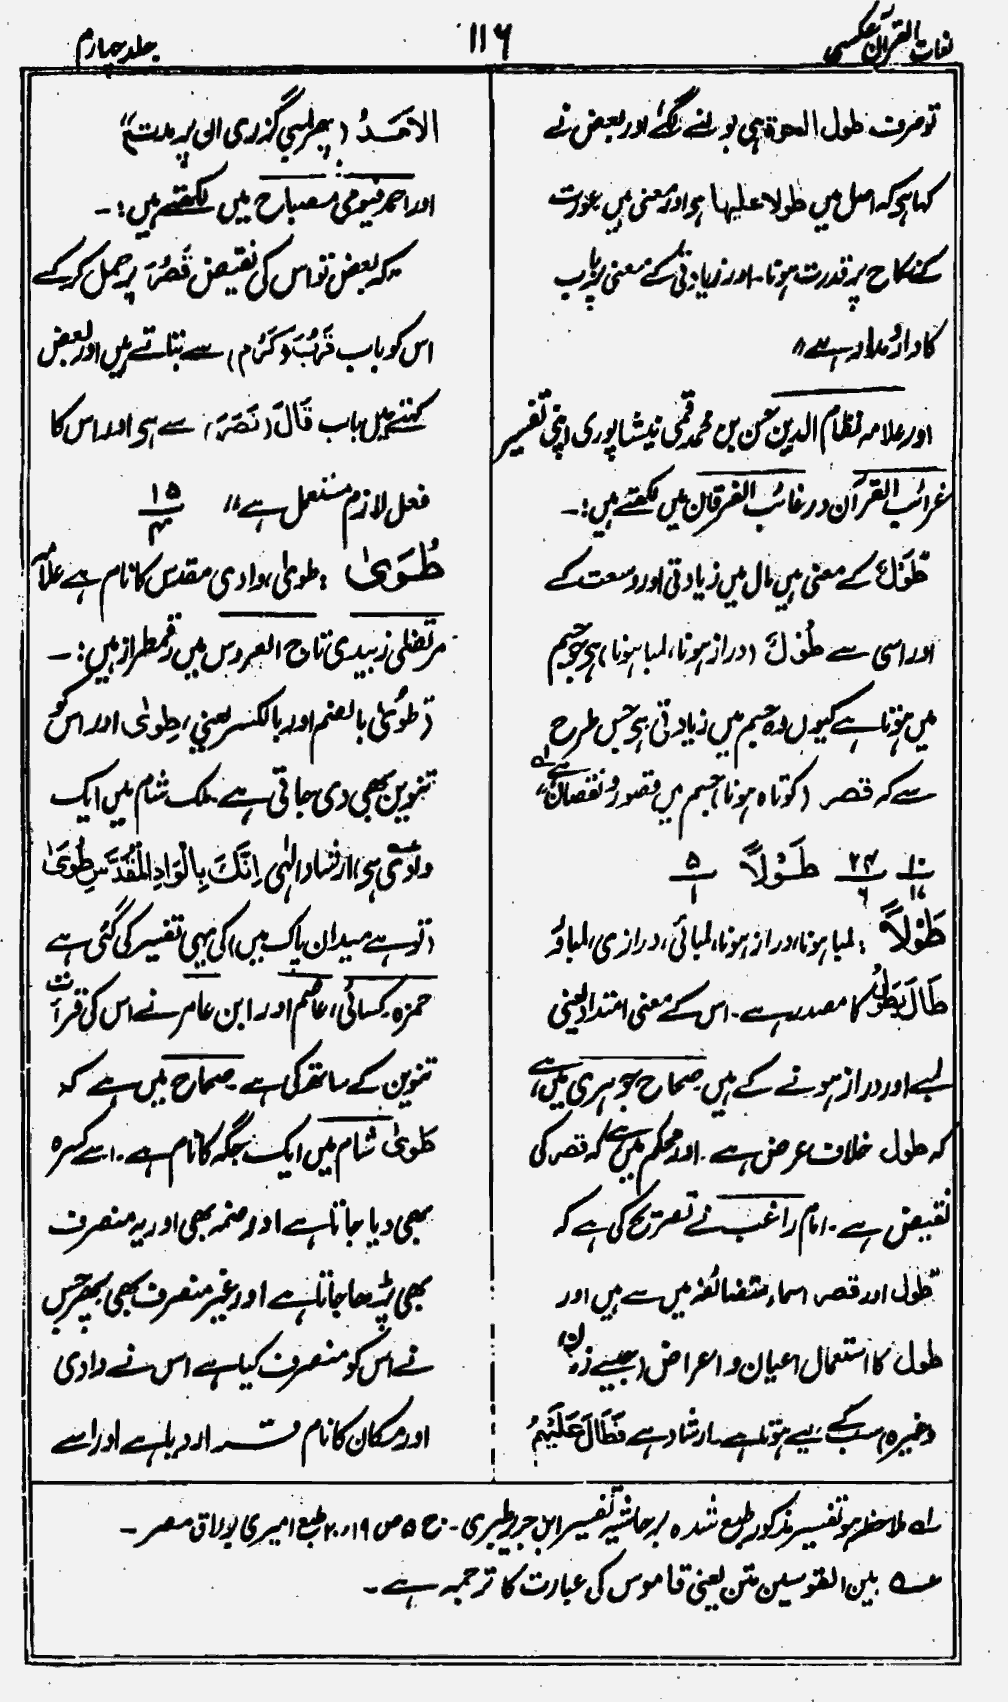 لغات القرآن عکسی
۱۱۶
جلد چہارم
تو صرف طول الحرۃ ہی بولنے لگے اور بعض نے
کہا ہی کہ اصل میں طولا علیہا ہی اور معنی ہیں عورت
کے نکاح پر قدرت ہونا۔ اور زیادتی کے معنی پر باب
کا دار و مدار ہے "
اور علامہ نظام الدین حسن بن محمد قمی نیشاپوری اپنی تفسیر
غرائب القرآن و رغائب الفرقان میں لکھتے ہیں :۔
طَوْلٌ کے معنی ہیں مال میں زیادتی اور وسعت کے
اور اسی سے طُوْلٌ (دراز ہونا، لمبا ہونا) ہی جو جسم
میں ہوتا ہے کیوں وہ جسم میں زیادتی ہی جس طرح
سے کہ قصر (کوتاہ ہونا) جسم میں قصور و نقصان ہے" لہ
طَوْلاً ۵/۱
طُوْلاً : لمبا ہونا، دراز ہونا، لمبائی، درازی، لمباؤ
طَالَ یَطُوْلُ کا مصدر ہے۔ اس کے معنی امتداد یعنی
لمبے اور دراز ہونے کے ہیں۔ صحاح جوہری میں ہے
کہ طول خلاف عرض ہے۔ اور محکم میں ہے کہ قصر کی
نقیض ہے۔ امام راغب نے تصریح کی ہے کہ
طول اور قصر اسماء متضائفہ میں سے ہیں اور
طول کا استعمال اعیان و اعراض (جیسے زمان)
وغیرہ) سب کے لیے ہوتا ہے۔ ارشاد ہے فَطَالَ عَلَیْہِمُ
الْاَمَدُ (پھر لمبی گزری ان پر مدت)"
اور احمد فیومی مصباح میں لکھتے ہیں :۔
"کہ بعض تو اس کی نقیض قَصُرَ پر حمل کر کے
اس کو باب قَرُبَ (کَرُمَ) سے بتاتے ہیں اور بعض
کہتے ہیں باب قَالَ (نَصَرَ) سے ہی اور اس کا
فعل لازم مستعمل ہے" ۱۵/۴
طُوًی : طویٰ، وادی مقدس کا نام ہے علامہ
مرتضیٰ زبیدی تاج العروس میں رقمطراز ہیں :۔
(طویٰ بالضم اور بالکسر یعنی، طِویٰ اور اس کو
تنوین بھی دی جاتی ہے۔ ملک شام میں ایک
وادی ہی) ارشاد الٰہی اِنَّکَ بِالْوَادِ الْمُقَدَّسِ طُوًی
(تو ہے میدان پاک میں) کی یہی تفسیر کی گئی ہے
حمزہ کسائی، عاصم اور ابن عامر نے اس کی قرأت
تنوین کے ساتھ کی ہے۔ صحاح میں ہے کہ
طویٰ شام میں ایک جگہ کا نام ہے۔ اسے کسرہ
بھی دیا جاتا ہے اور ضمہ بھی اور یہ منصرف
بھی پڑھا جاتا ہے اور غیر منصرف بھی پھر جس
نے اس کو منصرف کیا ہے اس نے وادی
اور مکان کا نام قرار دیا ہے اور اسے
لہ ملاحظہ ہو تفسیر مذکور طبع شدہ بر حاشیہ تفسیر ابن جریر طبری۔ ج ۵ ص ۱۹، ۲۰ طبع امیری بولاق مصر۔
عہ بین القوسین متن یعنی قاموس کی عبارت کا ترجمہ ہے۔